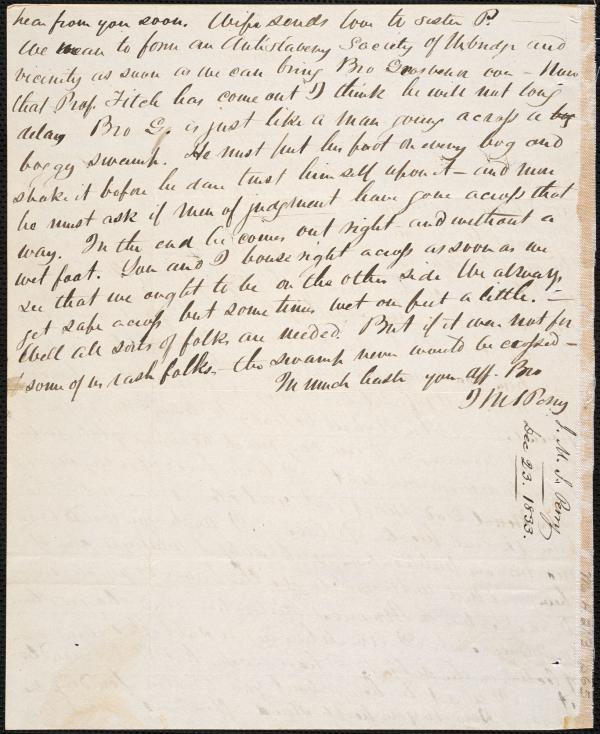 hear from you soon. Wife sends love to sister P.
We mean to form an Antislavery Society of Uxbridge and
vicinity as soon as we can bring Bro Grosvenor over - Now
that Prof. Fitch has come out I think he will not long
delay Bro G. is just like a man going across a bog
boggy swamp. He must put his foot on every bog and
shake it before he dare trust himself upon it - and more
he must ask if men of judgment have gone across that
way. In the end he comes out right and without a
wet foot. You and I bounce right across as soon as we
see that we ought to be on the other side We always
get safe across but sometimes wet our feet a little. -
Well all sorts of folks are needed. But if it were not for
some of us rash folks the swamp never would be crossed -
In much haste your aff. Bro
J M S Perry
J. M. S. Perry
Dec 23. 1833.